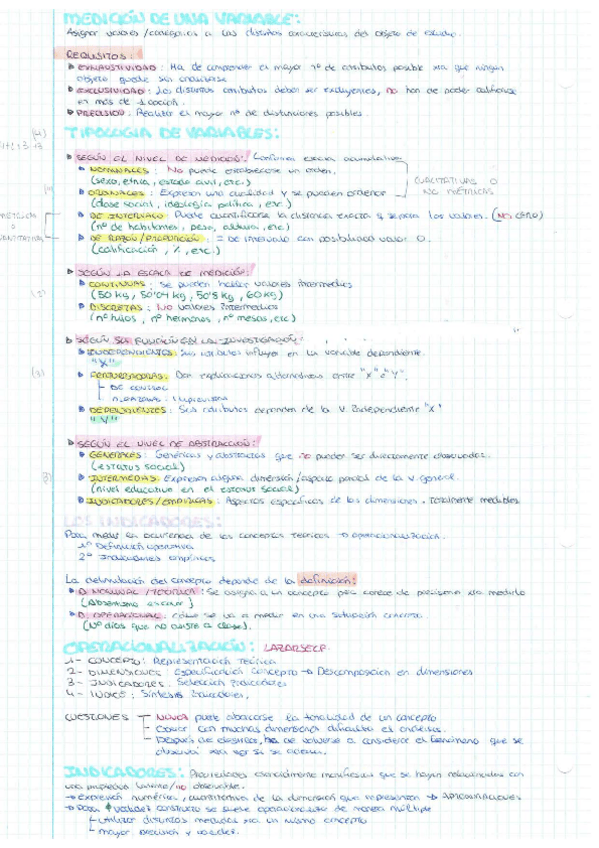 MEDICIÓN DE UNA VARIABLE:
Asignar valores/categorías a las distintas características del objeto de estudio.
REQUISITOS:
EXHAUSTIVIDAD: Ha de comprender el mayor nº de atributos posible xra que ningún
objeto quede sin clasificarse
EXCLUSIVIDAD: Los distintos atributos deben ser excluyentes, no han de poder calificarse
en más de 1 opción.
PRECISIÓN: Realizar el mayor nº de distinciones posibles.
TIPOLOGÍA DE VARIABLES:
SEGÚN EL NIVEL DE MEDIDOS: Conforman escala acumulativa
NOMINALES: No puede establecerse un orden.
(sexo, etnia, estado civil, etc.)
ORDINALES: Expresan una cualidad y se pueden ordenar
(clase social, ideología política, etc.)
CUALITATIVAS O
NO MÉTRICAS
DE INTERVALO: Puede cuantificarse la distancia exacta q separa los valores. (NO CERO)
(nº de habitantes, peso, altura, etc.)
DE RAZÓN/PROPORCIÓN: = De intervalo con posibilidad valor 0.
(calificación, %, etc.)
SEGÚN LA ESCALA DE MEDICIÓN:
CONTINUAS: Se pueden hallar valores intermedios
(50 kg, 50'04 kg, 50'5 kg, 60 kg)
DISCRETAS: No valores intermedios
(nº hijos, nº hermanos, nº mesas, etc)
SEGÚN SU FUNCIÓN EN LA INVESTIGACIÓN:
INDEPENDIENTES: Sus atributos influyen en la variable dependiente.
"X"
PERTURBADORAS: Dan explicaciones alternativas entre "X" e "Y".
DE CONTROL
DEPENDIENTES: Sus atributos dependen de la V. Independiente "X"
"Y"
SEGÚN EL NIVEL DE ABSTRACCIÓN:
GENERALES: Genéricas y abstractas que no pueden ser directamente observadas.
(estatus social)
INTERMEDIAS: Expresan alguna dimensión/aspecto parcial de la v. general.
(nivel educativo en el estatus social)
INDICADORES/EMPÍRICAS: Aspectos específicos de las dimensiones. Totalmente medibles
LOS INDICADORES:
Para medir la ocurrencia de los conceptos teóricos → operacionalización.
1º Definición operativa
2º Indicadores empíricos
La delimitación del concepto depende de la definición:
D. NOMINAL/TEÓRICA: Se asigna a un concepto pero carece de precisión xra medirlo
(Absentismo escolar)
D. OPERACIONAL: Cómo se va a medir en una situación concreta.
(Nº días que no asiste a clase).
OPERACIONALIZACIÓN: LAZARSFELD.
1- CONCEPTO: Representación Teórica
2- DIMENSIONES: Especificación concepto → Descomposición en dimensiones
3- INDICADORES: Selección indicadores
4- ÍNDICE: Síntesis indicadores.
CUESTIONES
Nunca puede abarcarse la totalidad de un concepto
Contar con muchas dimensiones dificulta el análisis.
Después de elegirlos, ha de volverse a considerar el fenómeno que se
observó xra ver si se adecua.
INDICADORES: Propiedades esencialmente manifiestas que se hayan relacionadas con
una propiedad latente/no observable.
→ expresión numérica, cuantitativa de la dimensión que representan → APROXIMACIONES
→ Para validez constructo se suele operacionalizar de manera múltiple
utilizar distintas medidas xra un mismo concepto
mayor precisión y validez.